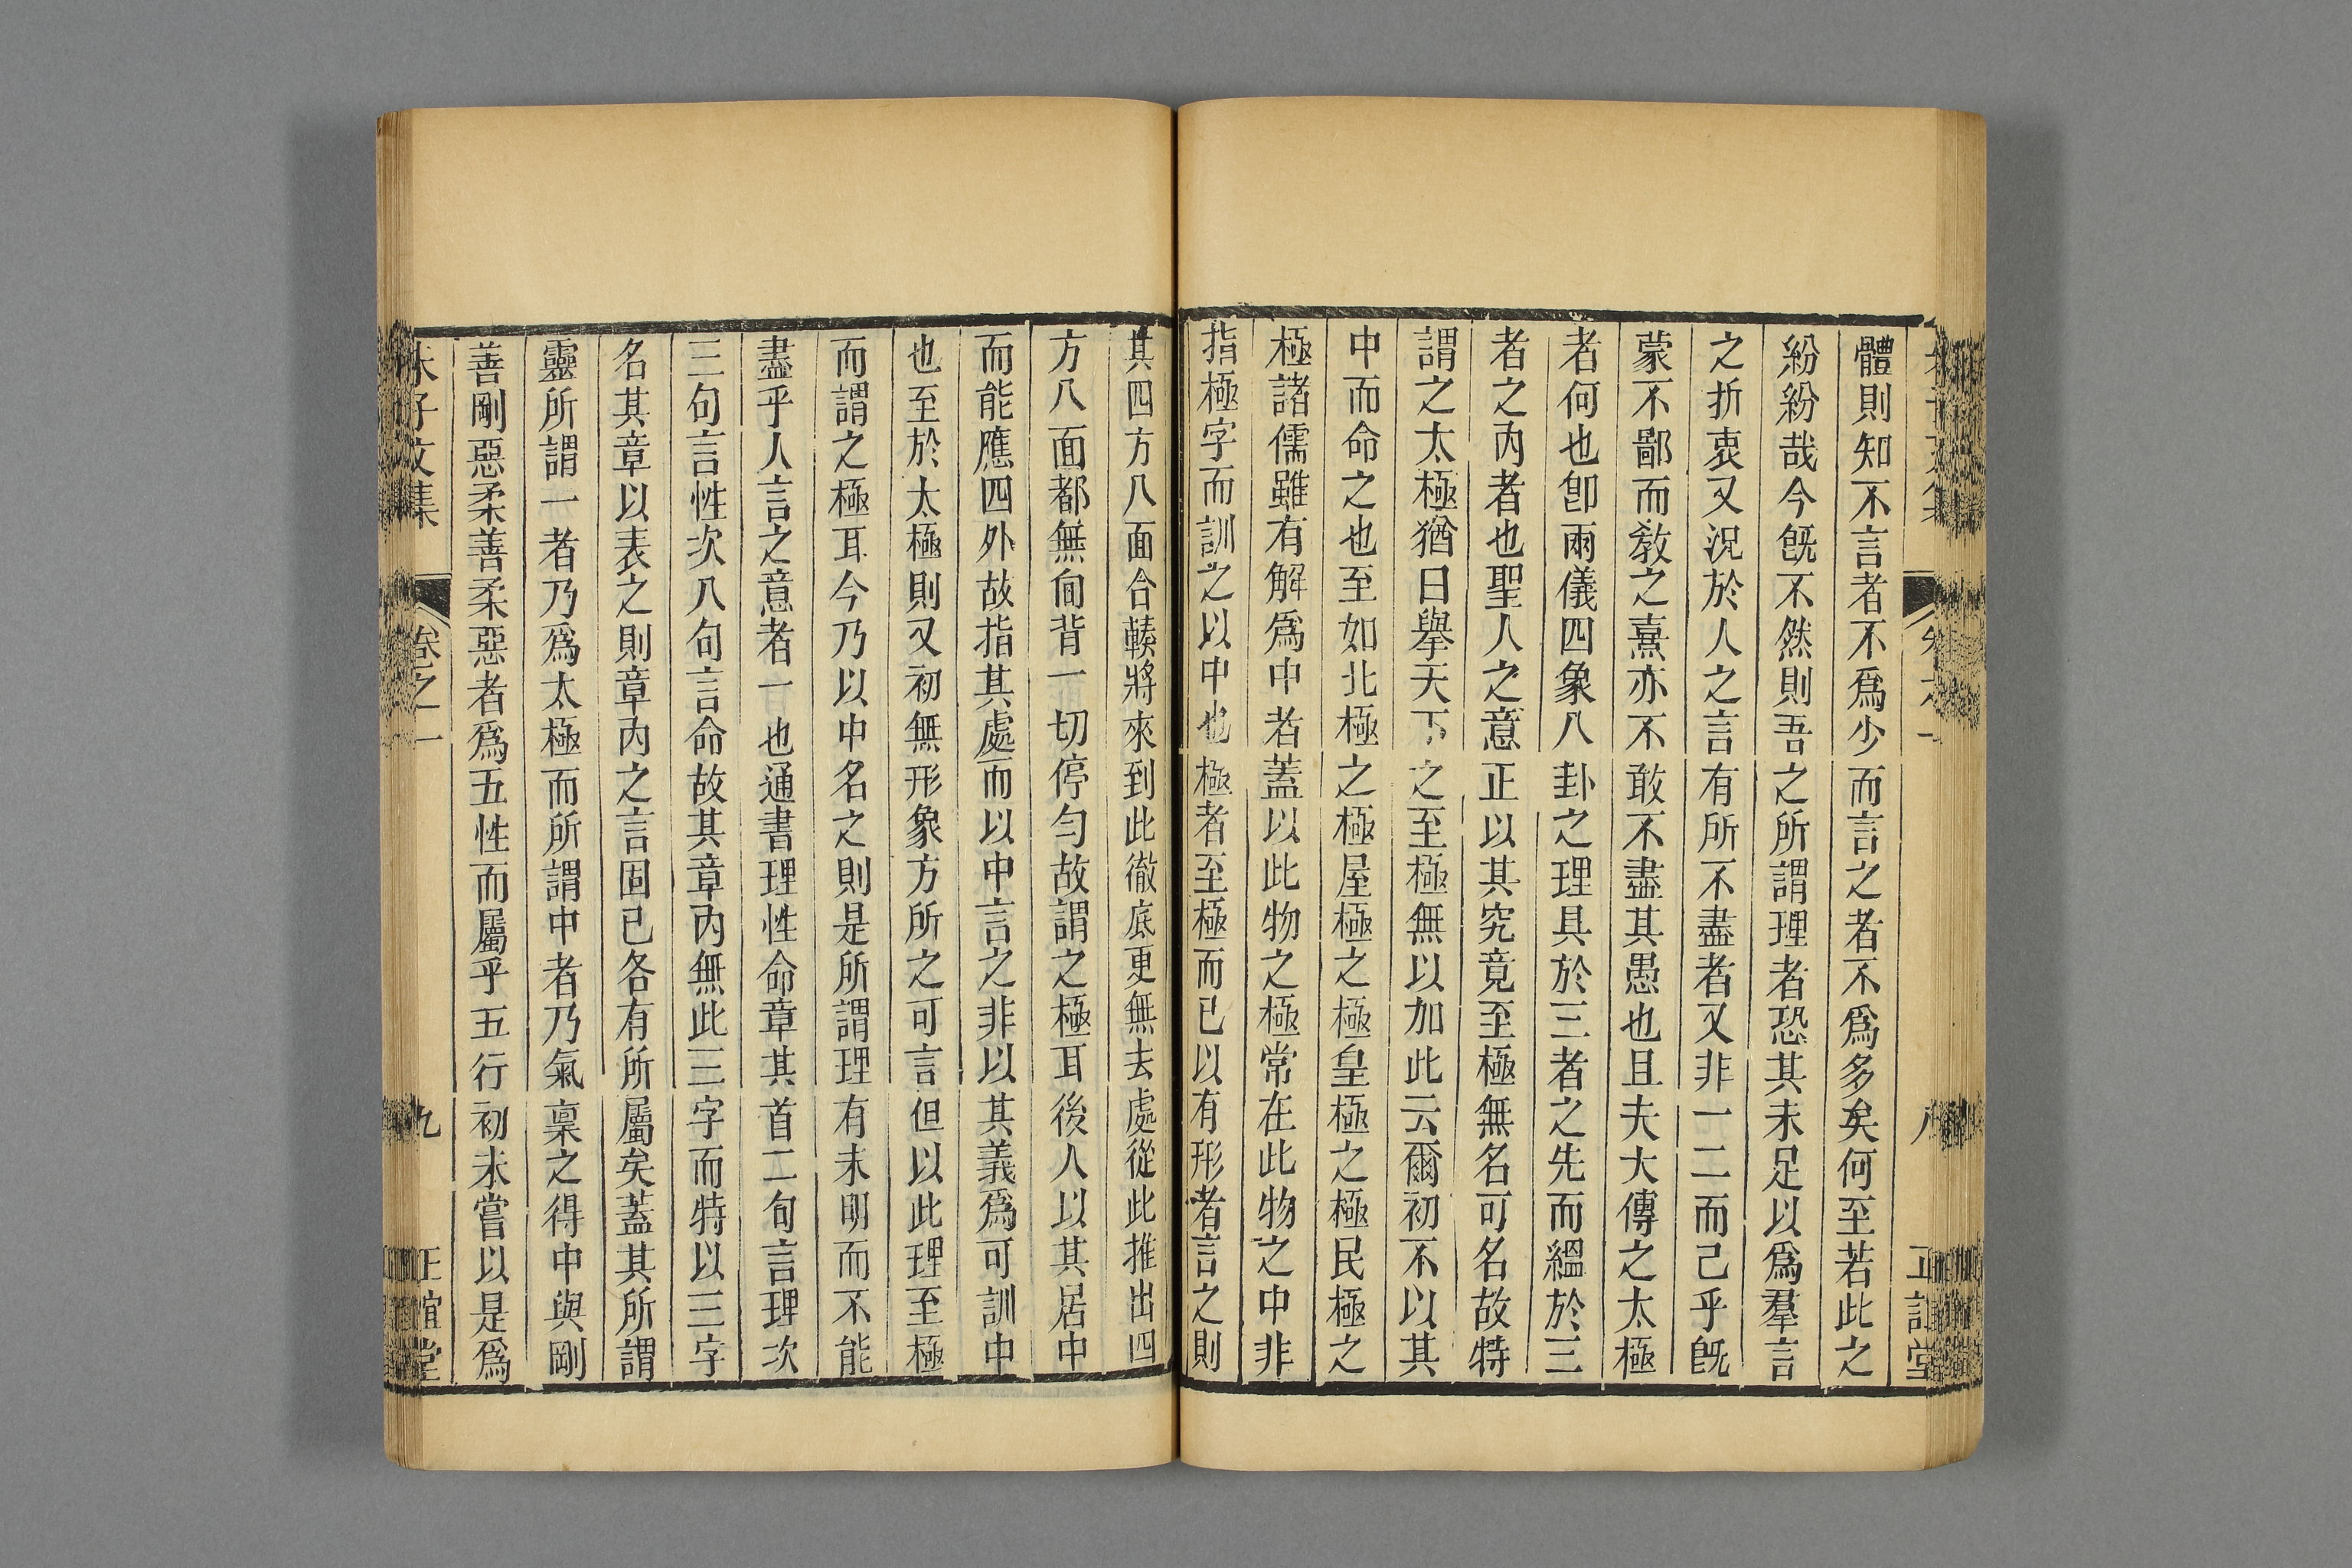 體則知不言者不爲少而言之者不爲多矣何至若此之
紛紛哉今旣不然則吾之所謂理者恐其未足以爲羣言
之折衷又況於人之言有所不盡者又非一二而已乎旣
蒙不鄙而敎之熹亦不敢不盡其愚也且夫大傳之太極
者何也卽兩儀四象八卦之理具於三者之先而緼於三
者之內者也聖人之意正以其究竟至極無名可名故特
謂之太極猶曰擧天下之至極無以加此云爾初不以其
中而命之也至如北極之極屋極之極皇極之極民極之
極諸儒雖有解爲中者蓋以此物之極常在此物之中非
指極字而訓之以中也極者至極而已以有形者言之則
其四方八面合輳將來到此徹底更無去處從此推出四
方八面都無向背一切停勻故謂之極耳後人以其居中
而能應四外故指其處而以中言之非以其義爲可訓中
也至於太極則又初無形象方所之可言但以此理至極
而謂之極耳今乃以中名之則是所謂理有未明而不能
盡乎人言之意者一也通書理性命章其首二句言理次
三句言性次八句言命故其章內無此三字而特以三字
名其章以表之則章內之言固已各有所屬矣蓋其所謂
靈所謂一者乃爲太極而所謂中者乃氣稟之得中與剛
善剛惡柔善柔惡者爲五性而屬乎五行初未嘗以是爲
朱子文集 卷之一 九 正誼堂